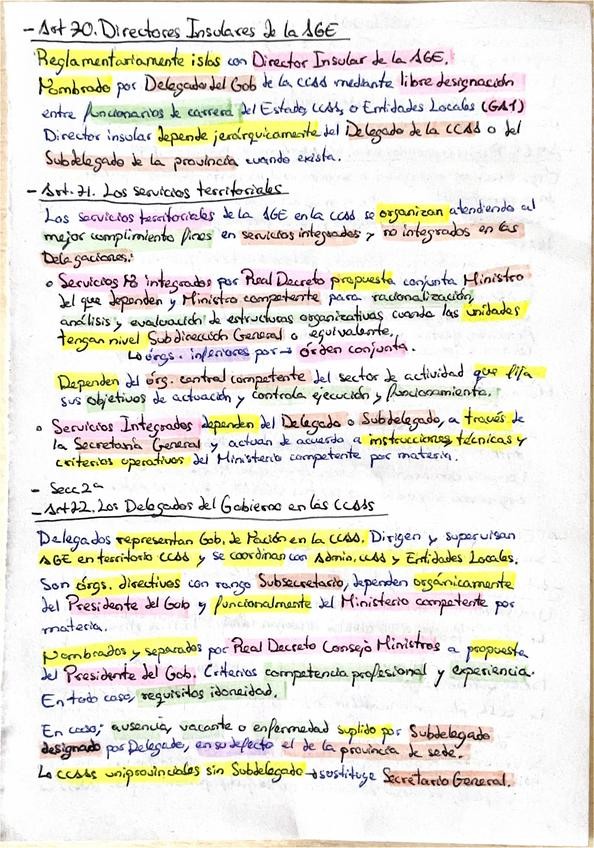 - Art 70. Directores Insulares de la AGE
Reglamentariamente islas con Director Insular de la AGE.
Nombrado por Delegado del Gob de la CCAA mediante libre designación
entre funcionarios de carrera del Estado, CCAA, o Entidades Locales (GA1)
Director insular depende jerárquicamente del Delegado de la CCAA o del
Subdelegado de la provincia cuando exista.
- Art. 71. Los servicios territoriales
Los servicios territoriales de la AGE en la CCAA se organizan atendiendo al
mejor cumplimiento fines en servicios integrados y no integrados en las
Delegaciones:
o Servicios No integrados por Real Decreto propuesta conjunta Ministro
del que dependen y Ministro competente para racionalización,
análisis y evaluación de estructuras organizativas cuando las unidades
tengan nivel Subdirección General o equivalente.
↳ órgs. inferiores por → órden conjunta.
Dependen del órg. central competente del sector de actividad que fija
sus objetivos de actuación y controla ejecución y funcionamiento.
o Servicios Integrados dependen del Delegado o Subdelegado, a través de
la Secretaría General y actúan de acuerdo a instrucciones técnicas y
criterios operativos del Ministerio competente por materia.
- Secc 2ª
- Art 72. Los Delegados del Gobierno en las CCAAs
Delegados representan Gob. de Nación en la CCAA. Dirigen y supervisan
AGE en territorio CCAA y se coordinan con Admin. CCAA y Entidades Locales.
Son órgs. directivos con rango Subsecretario, dependen orgánicamente
del Presidente del Gob y funcionalmente del Ministerio competente por
materia.
Nombrados y separados por Real Decreto Consejo Ministros a propuesta
del Presidente del Gob. Criterios competencia profesional y experiencia.
En todo caso, requisitos idoneidad.
En caso; ausencia, vacante o enfermedad suplido por Subdelegado
designado por Delegado, en su defecto el de la provincia de sede.
↳ CCAAs uniprovinciales sin Subdelegado → sustituye Secretario General.